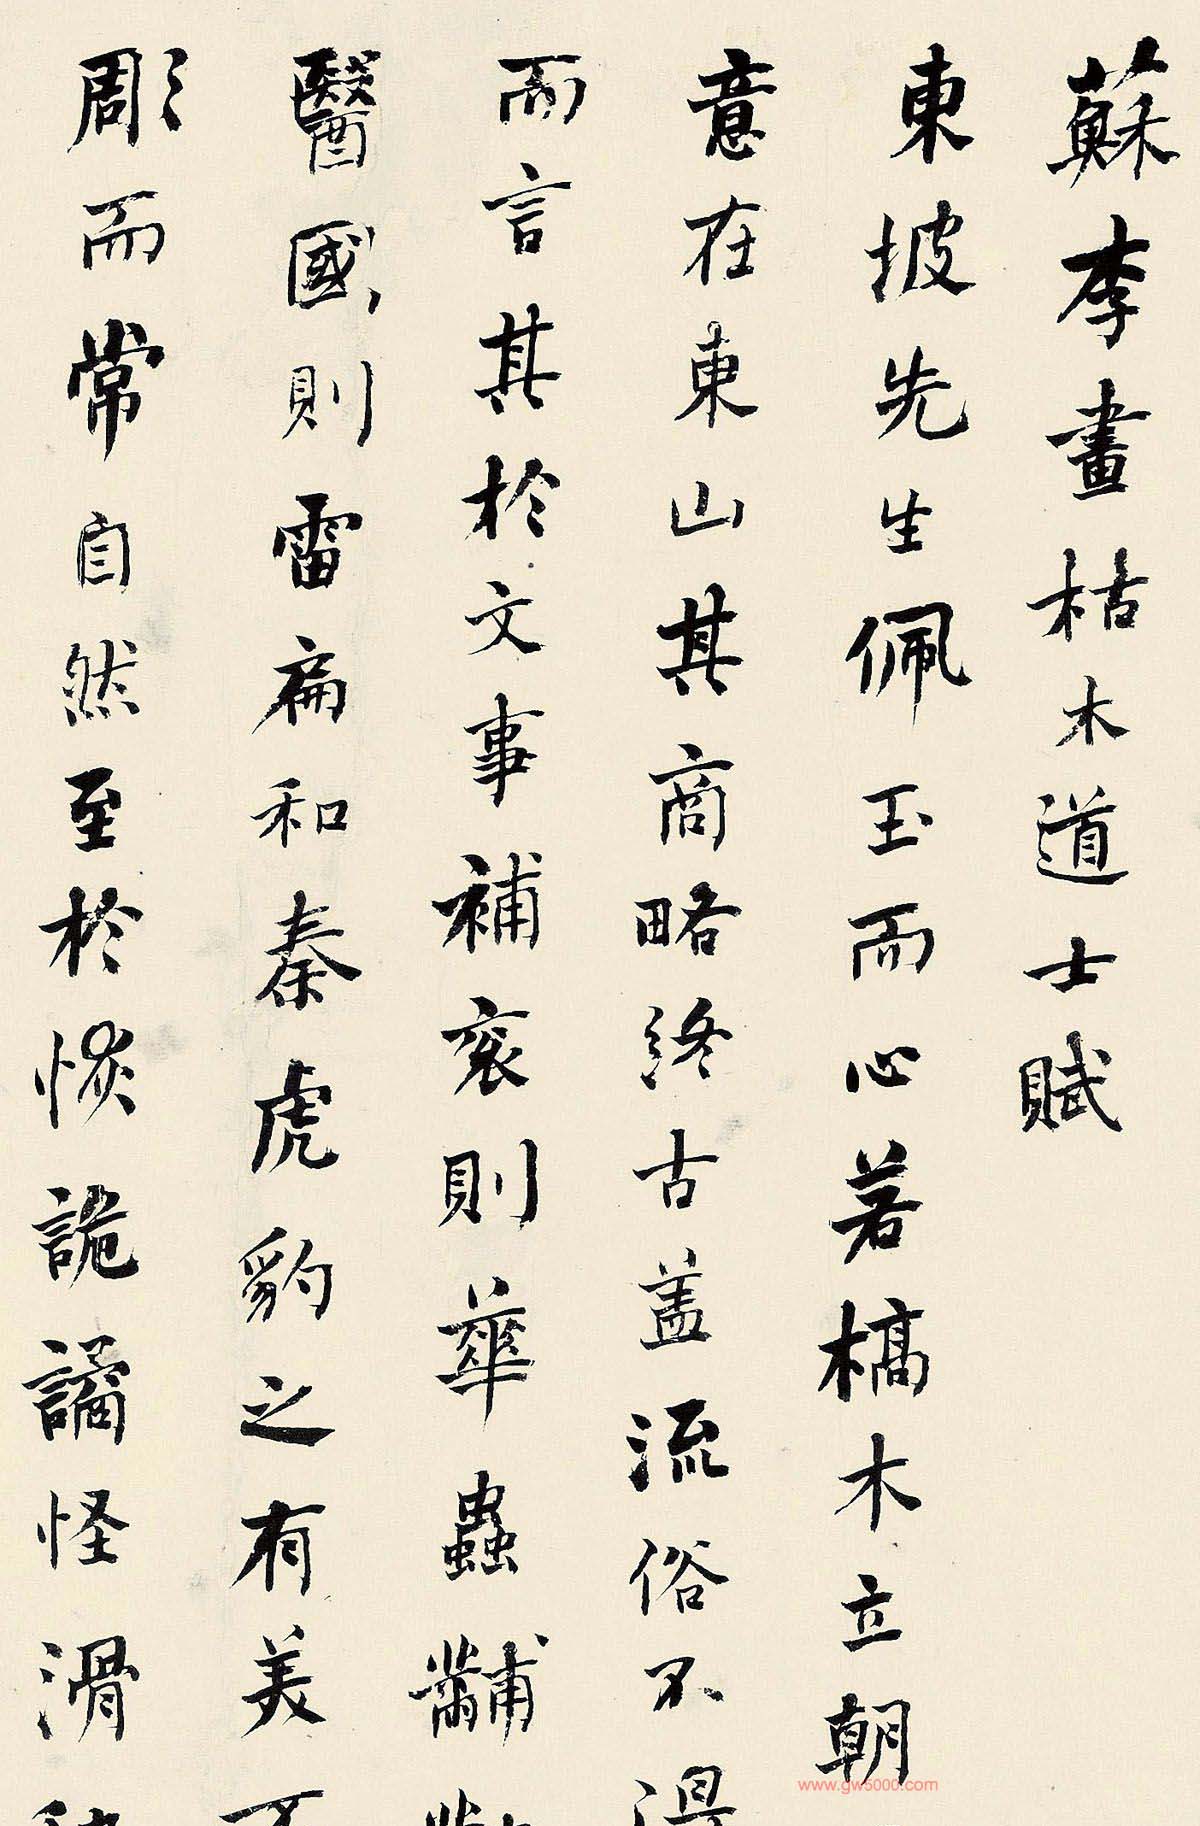 蘇李畫枯木道士賦
東坡先生佩玉而心若槁木立朝
意在東山其商略終古盖流俗不得
而言其於文事補袞則華蟲黼黻
醫國則雷扁和秦虎豹之有美不
彫而常自然至於恢詭譎怪滑稽
www.gw5000.com